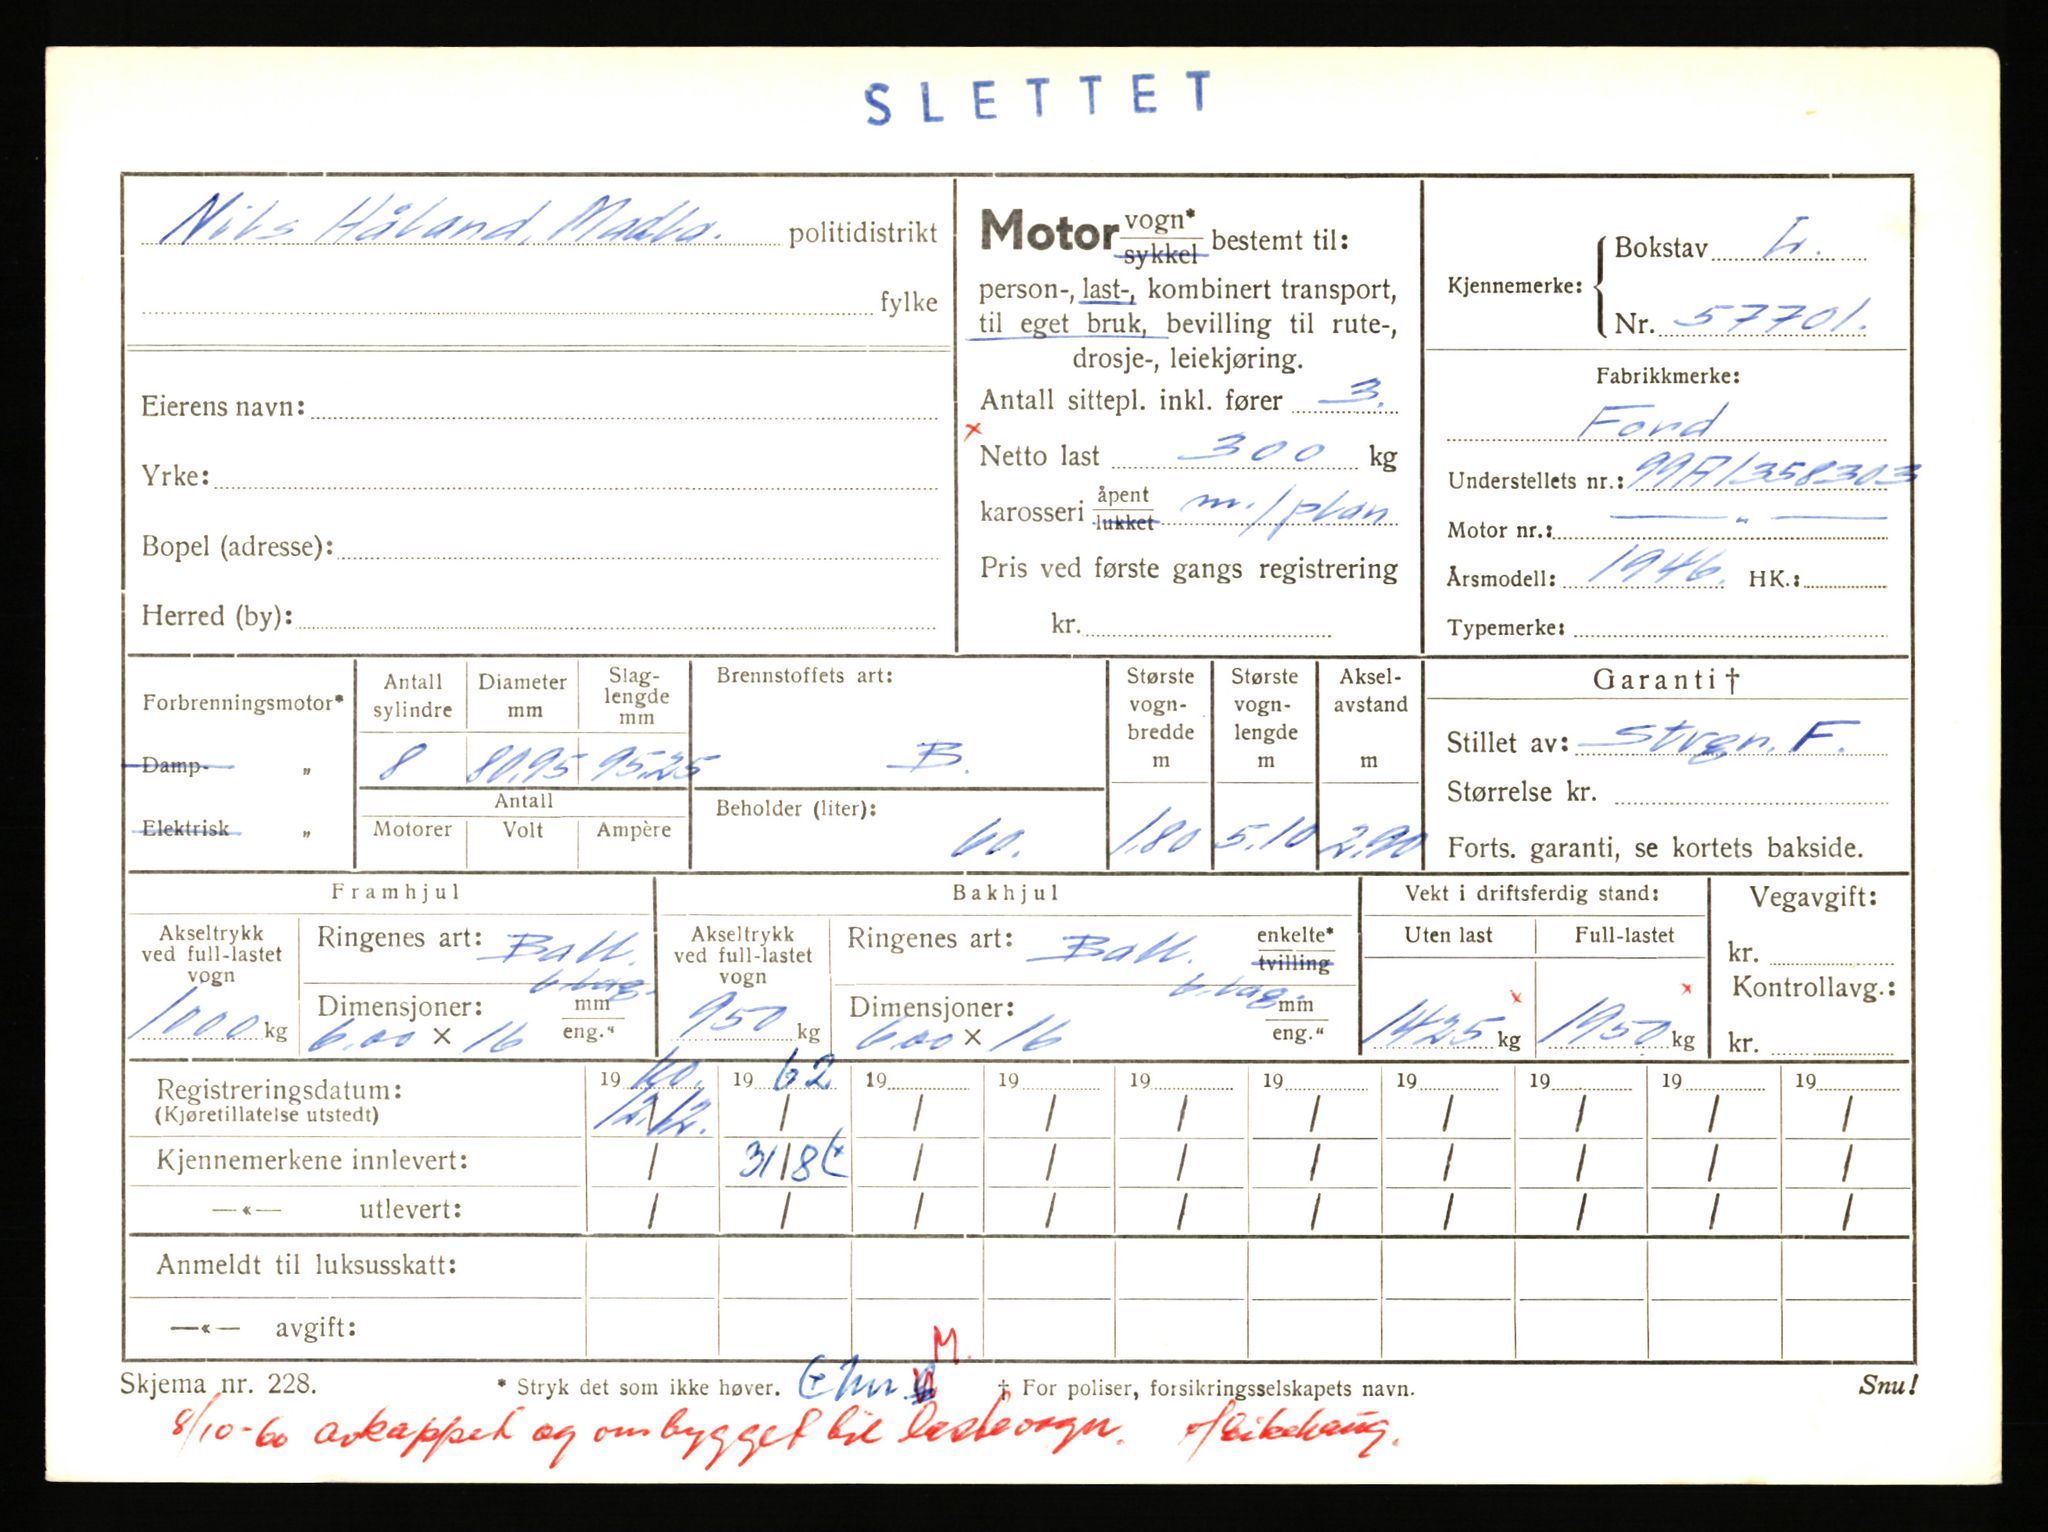 SLETTET
Nils Håland, Madla. politidistrikt
fylke
Eierens navn:
Yrke:
Bopel (adresse):
Herred (by):
Motor vogn* sykkel bestemt til:
person-, last-, kombinert transport,
til eget bruk, bevilling til rute-,
drosje-, leiekjøring.
Antall sittepl. inkl. fører 3.
x
Netto last 300 kg
karosseri åpent lukket m./plan
Pris ved første gangs registrering
kr.
Kjennemerke: Bokstav L.
Nr. 57701.
Fabrikkmerke:
Ford
Understellets nr.: 99A/358303
Motor nr.: — " —
Årsmodell: 1946. HK.:
Typemerke:
Forbrenningsmotor*
Damp- „
Elektrisk „
Antall sylindre Diameter mm Slag-lengde mm
8 80.95 95.25
Antall
Motorer Volt Ampère
Brennstoffets art:
B.
Beholder (liter):
60.
Største vogn-bredde m
1.80
Største vogn-lengde m
5.10
Aksel-avstand m
2.90
Garanti †
Stillet av: Strgn. F.
Størrelse kr.
Forts. garanti, se kortets bakside.
Framhjul
Akseltrykk ved full-lastet vogn
1000 kg
Ringenes art: Ball.
6 lag.
Dimensjoner: mm
6.00 × 16 eng."
Bakhjul
Akseltrykk ved full-lastet vogn
950 kg
Ringenes art: Ball. enkelte* tvilling
6. lag.
Dimensjoner: mm
6.00 × 16 eng."
Vekt i driftsferdig stand:
Uten last Full-lastet
x x
1425 kg 1950 kg
Vegavgift:
kr.
Kontrollavg.:
kr.
Registreringsdatum: 19 60. 19 62 19 19 19 19 19 19 19 19
(Kjøretillatelse utstedt) 12/12. / / / / / / / / /
Kjennemerkene innlevert: / 31/8 / / / / / / / /
—«— utlevert: / / / / / / / / / /
Anmeldt til luksusskatt:
—«— avgift:
M.
Skjema nr. 228. * Stryk det som ikke høver. † For poliser, forsikringsselskapets navn. Snu!
8/10-60 avkappet og ombygget til lastevogn.